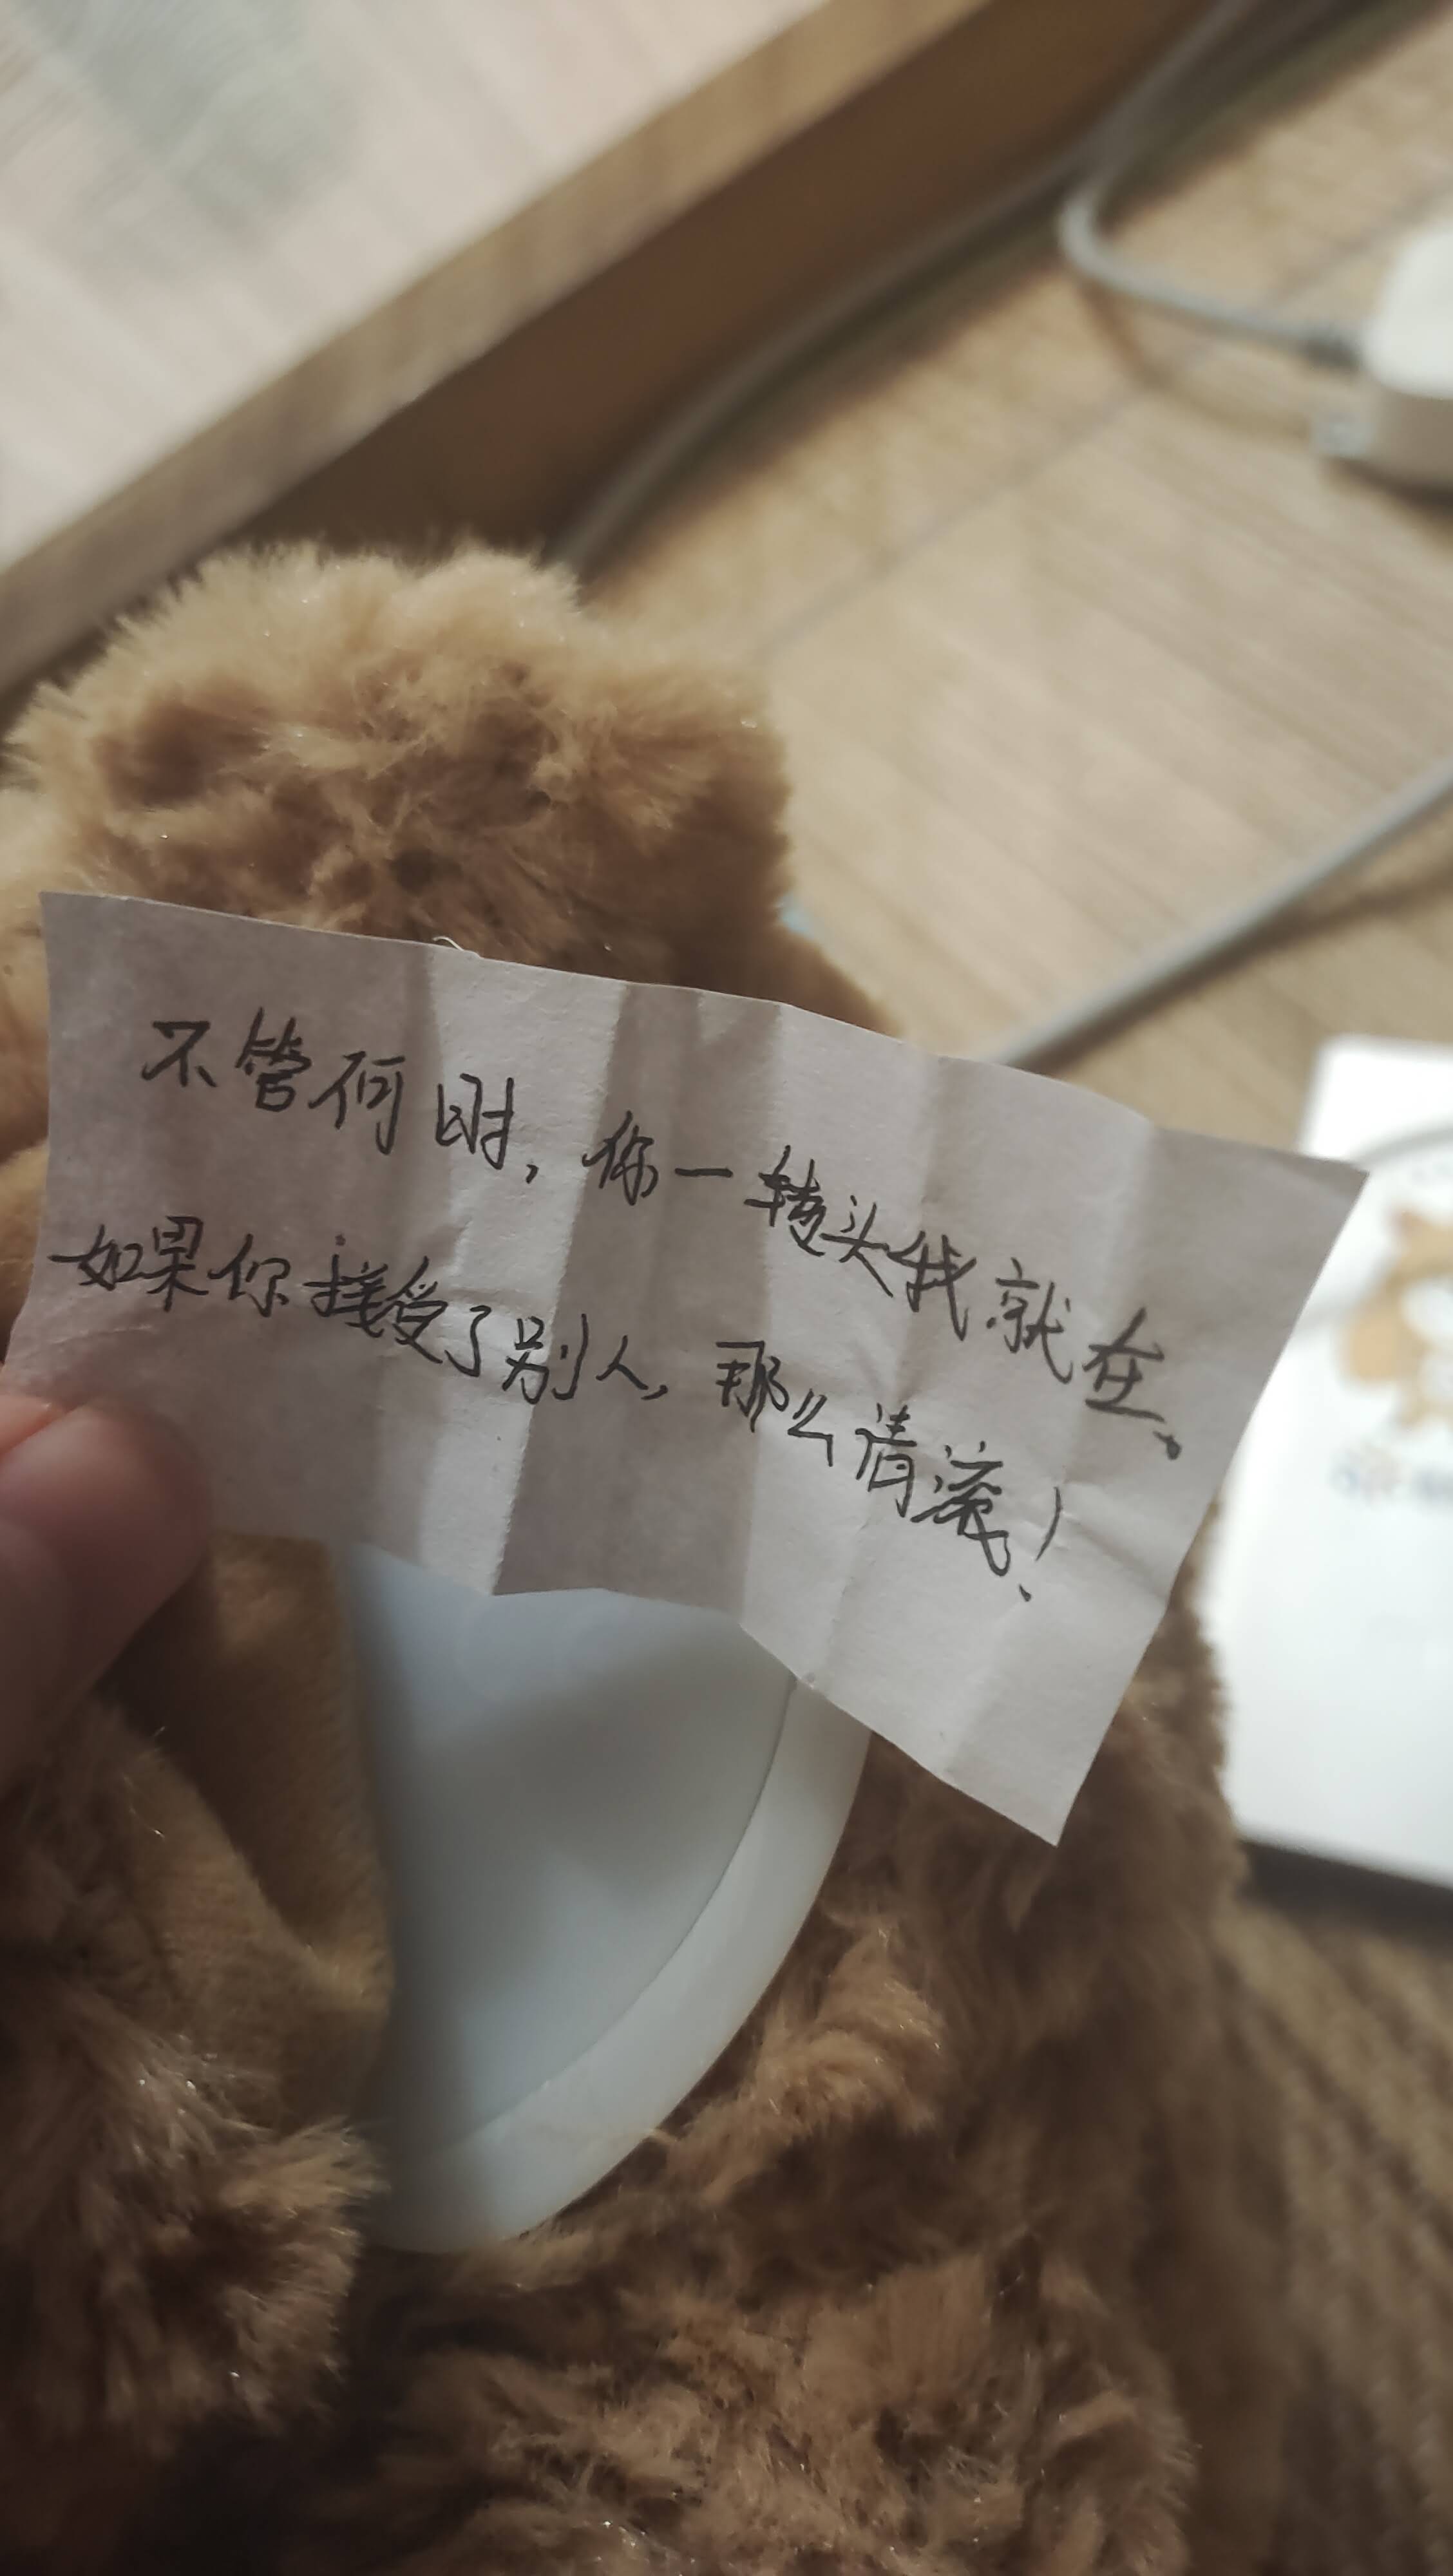 不管何时，你一转头我就在、
如果你接受了别人，那么请滚！